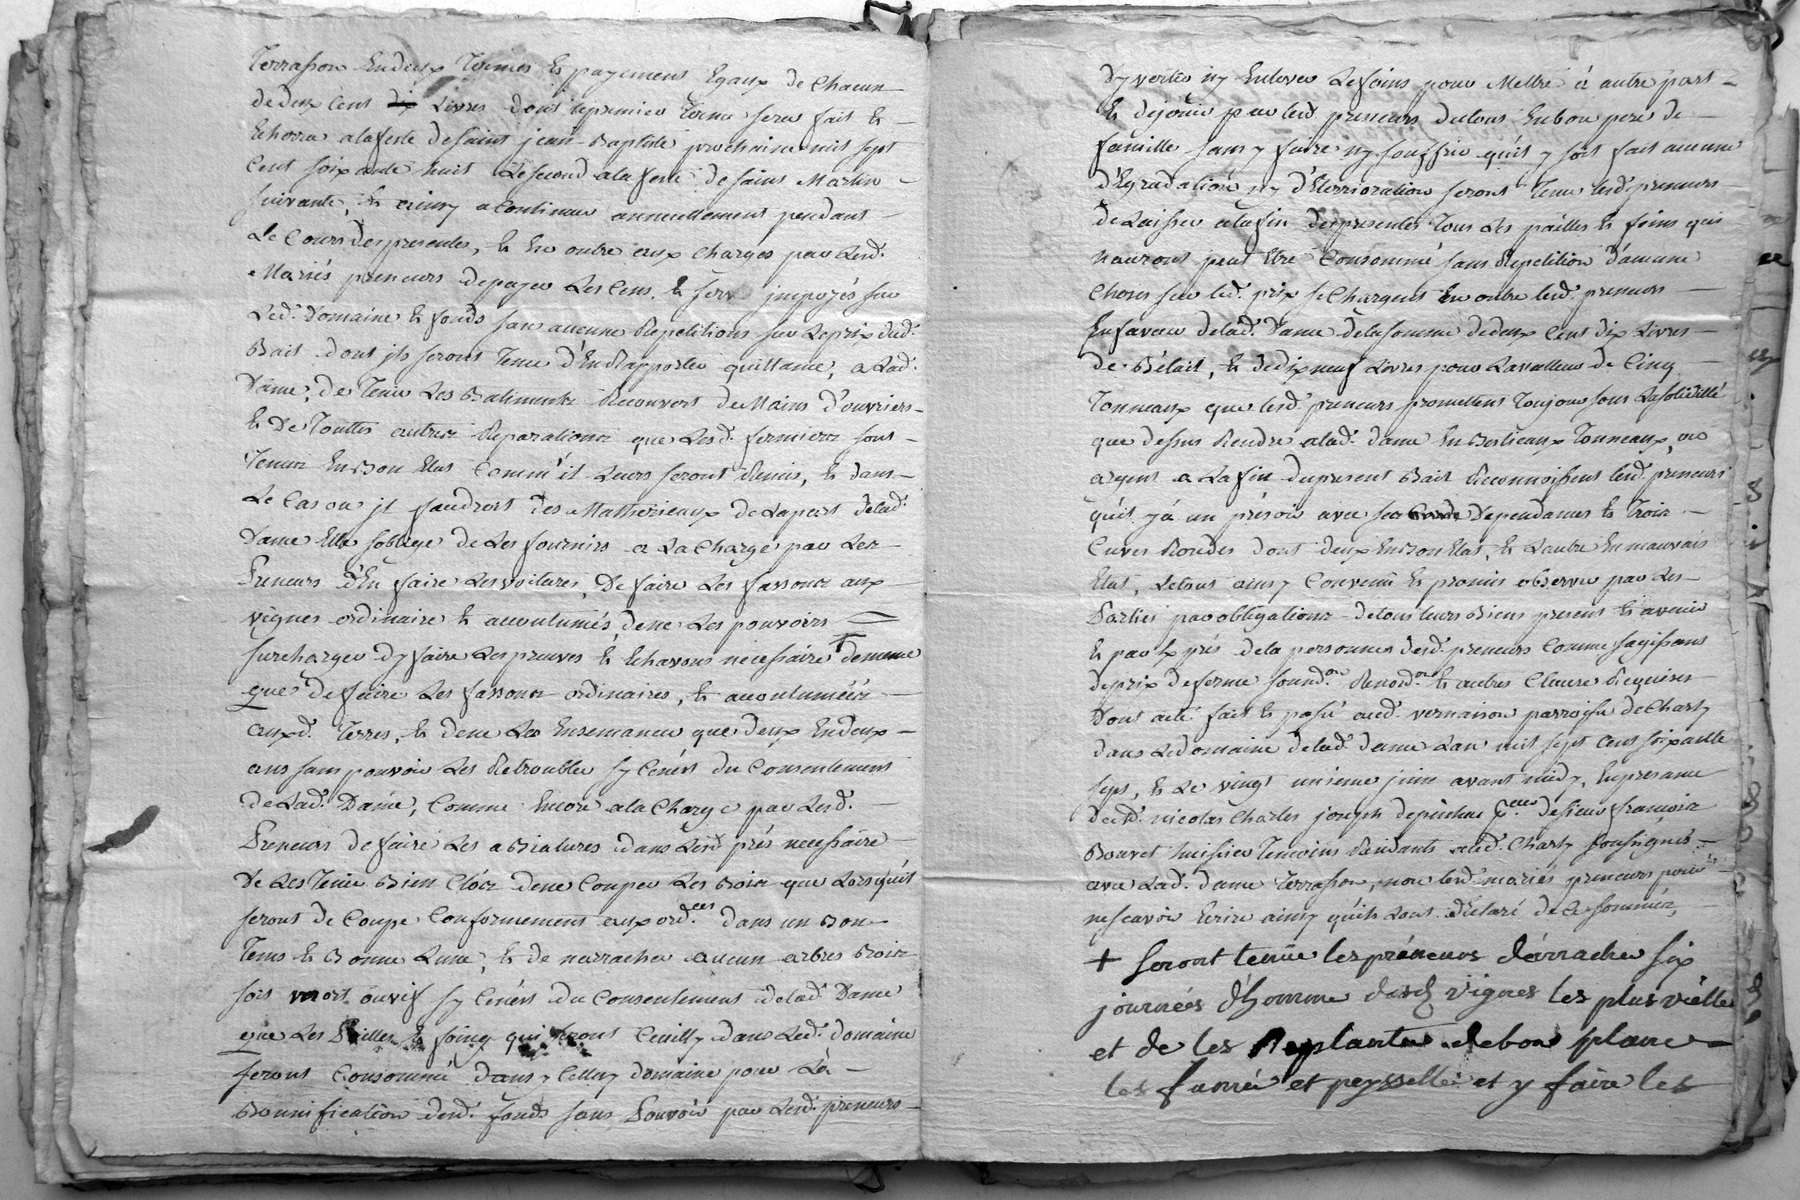 Terrasson En deux Termes & payemens Egaux de Chacun
de deux Cent dix Livres dont le premier terme sera fait &
Echerra a la feste de Saint jean Baptiste prochaine mil sept
Cent soixante huit Le second a la feste de Saint Martin
suivante, & ainsy a Continuer annuellement pendant
Le Cours des presentes, & En outre aux Charges par Lesd.
Mariés preneurs de payer Les Cens & imposés sur
Led. Domaine & fonds sans aucune Repetitions sur Le prix dud.
Bail dont jls seront Tenu d'En Rapporter quittance, a Lad.
Dame, de Tenir Les Batiments Recouvert de Mains d'ouvriers
& De Touttes autres Reparations que Lesd. fermiers sont
Tenir En Bon Etat Comm'il Leurs seront Remis, & dans
Le Cas ou jl faudroit des Matherieaux de La part de Lad.
Dame Elle soblige de Les fournirs a La Charge par Les
Preneurs d'En faire Les voitures, De faire Les fassons aux
vignes ordinaire & accoutumés, de ne Les pouvoirs
surcharger d'y faire Les preuves & Echavons necessaire + de meme
que de faire Les fassons ordinaires, & accoutumées
auxd. Terres, & de ne Les Ensemancer que deux En deux
ans sans pouvoir Les Retroubler sy Cenest du Consentement
de Lad. Dame, Comme Encore a la Charge par Lesd.
Preneurs de faire Les abriatures dans Lesd. prés necessaire
De Les Tenir Bien Clos de ne Couper Les Bois que Lorsqu'il
seront de Coupe Conformement aux ord.ces dans un Bon
Tems & Bonne Lune, & de narracher aucun arbres Bois
soit mort ou vif sy Cenest du Consentement de Lad. Dame
que Les Pailles & foins qui seront Ceuilly dans Led. domaine
seront Consommé dans y Celluy domaine pour La
Bonnification desd. fonds sans Pouvoir par Lesd. preneurs
d'y vertir ny Enlever Les foins pour Mettre a autre part
& de jouir par lesd. preneurs du tout En bon pere de
famille sans y faire ny souffrir qu'il y soit fait aucune
d'Egradation ny d'Eterrioration seront Tenu lesd. preneurs
de Laisser a la fin des presentes Tous Les pailles & foins qui
nauront peut Etre Consommé sans Repetition d'aucune
Choses sur led. prix se Chargent En outre lesd. preneurs
En faveur de lad. dame de la somme de deux Cent dix Livres
de Bétail, & de dix neuf Livres pour La valleur de Cinq
Tonneaux que lesd. preneurs promettent Toujour sous La solidité
que dessus Rendre a lad. dame En Bestieaux Tonneaux, ou
argent a La fin du present Bail Reconnoissent lesd. preneurs
qu'il y à un présoir avec ses Dependances & Trois
Cuves Rondes dont deux En Bon Etat, & L'autre En mauvais
Etat, Le tout ainsy Convenu & promis observer par Les
Parties par obligations de tous leurs Biens present & avenir
& par Exprés de la personnes desd. preneurs Comme sagissant
de prix de ferme soumd.on Renond.on & autres Clause Requises
Dont acte fait & passé aud. vernaison parroisse de Charly
dans Le domaine de lad. dame L'an mil sept cent soixante
sept, & Le vingt unieme juin avant midy, En presance
de nicolas Charles joseph de Sr francois
Bouvet huissier Temoins Residants aud. Charly soussignés
avec Lad. dame Terrasson, non lesd. mariés preneurs pour
ne scavoir Ecrire ainsy qu'ils ont d'Eclaré de Ce sommés,
+ seront tenüe les préneurs dérracher six
journées d'homme desd. vignes les plus vielle
et de les Replanter de bon plant
les fumé et peysselle et y faire les